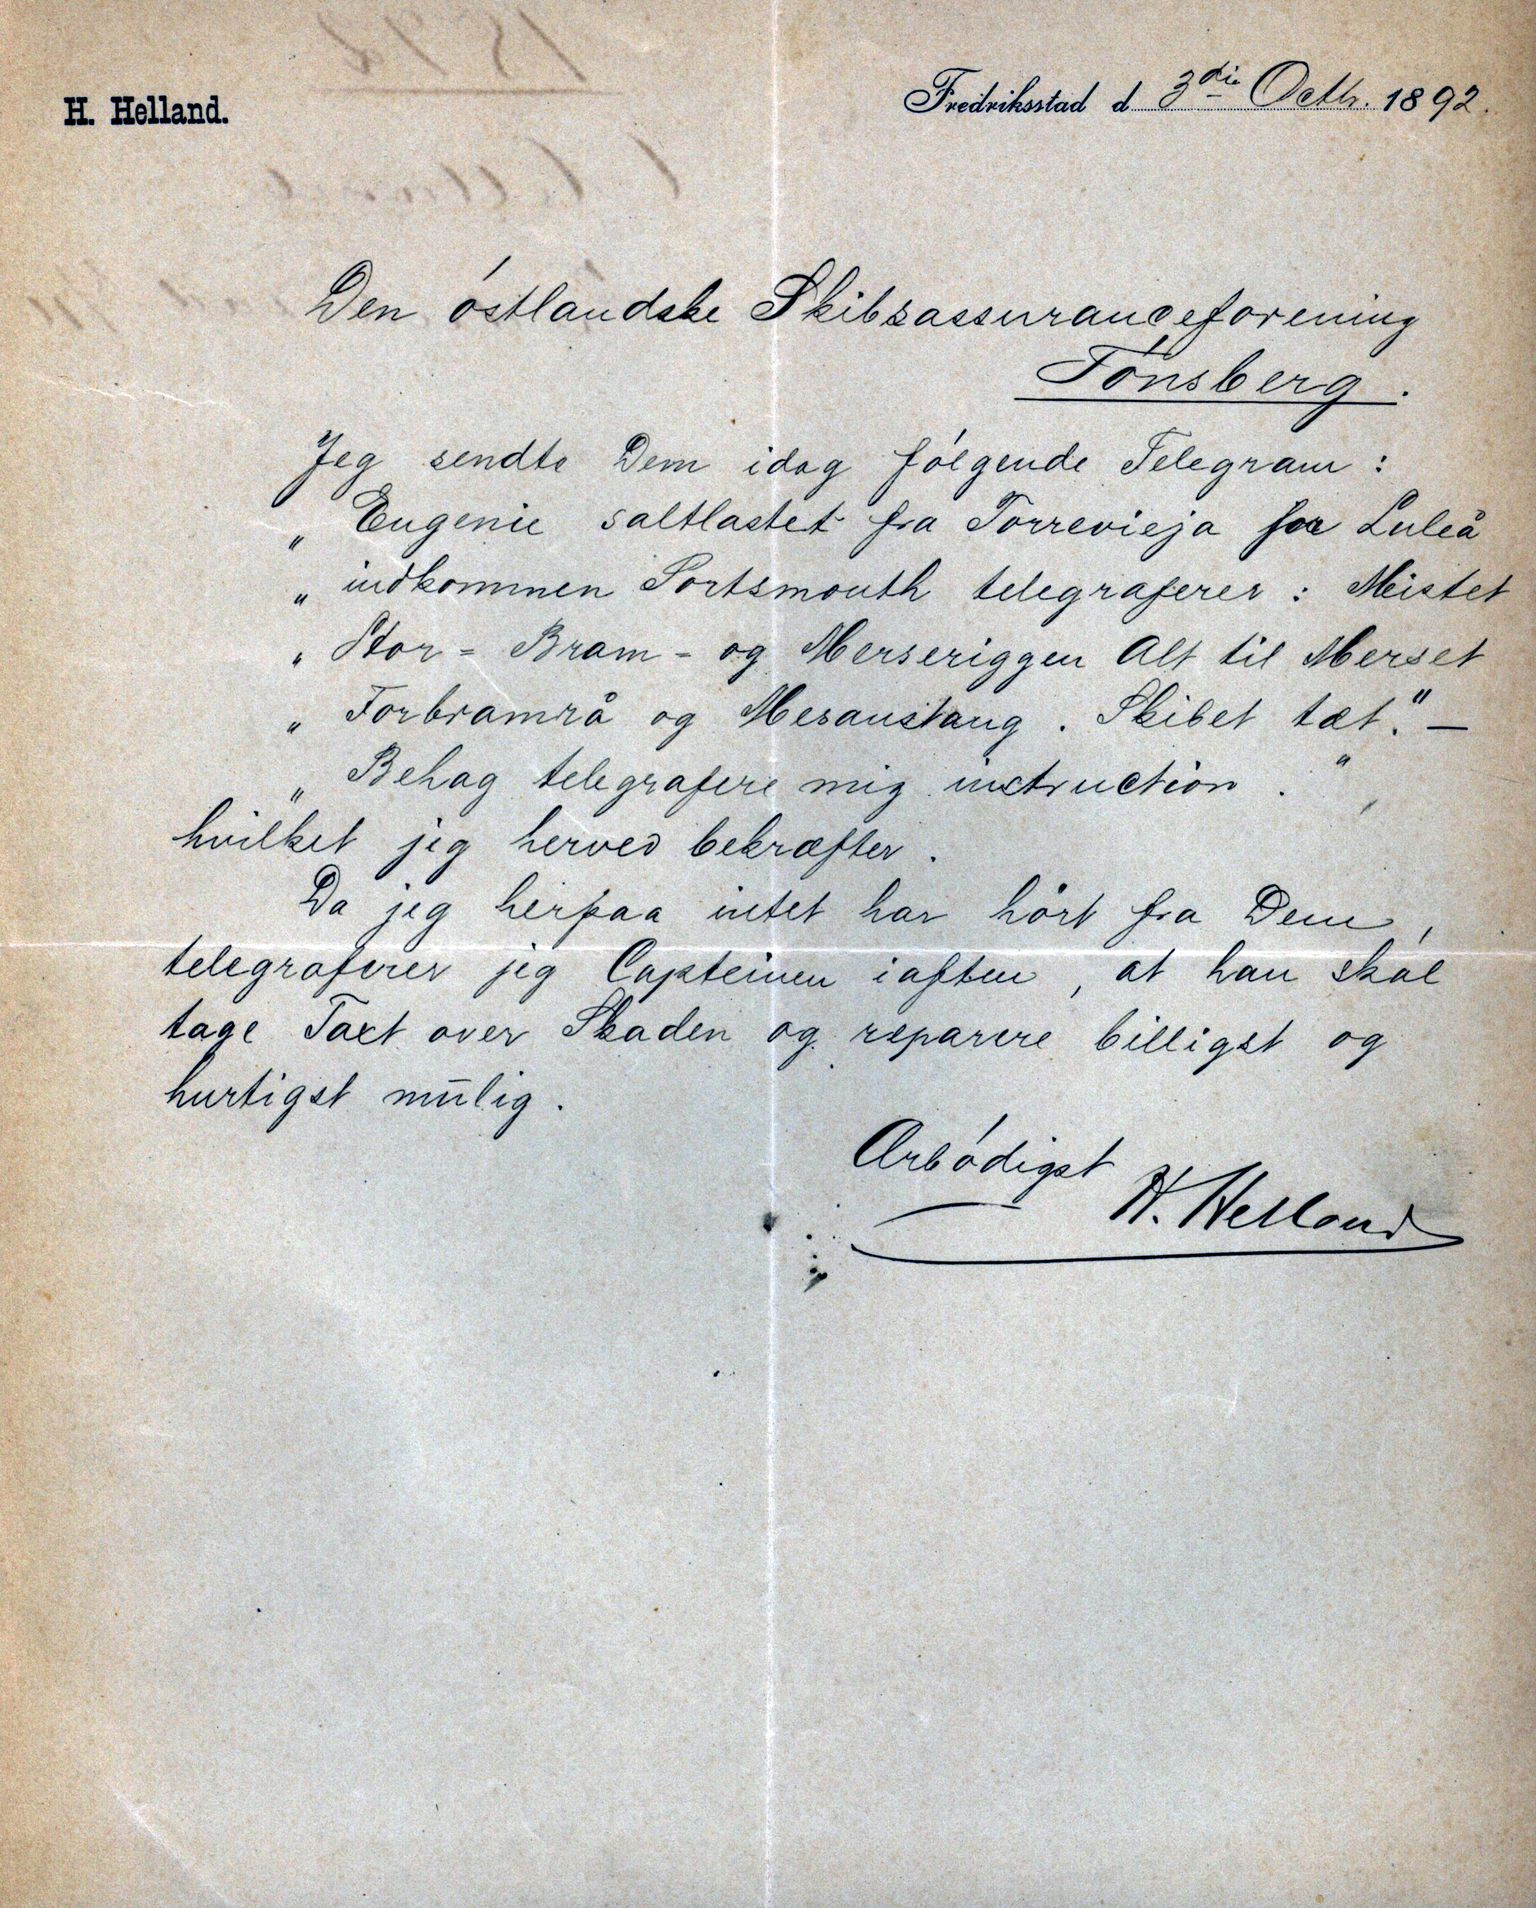 H. Helland.
Fredriksstad d 3die Octbr. 1892.
Den östlandske Skibsassuranceforening
Tönsberg.
Jeg sendte Dem idag fölgende Telegram:
„ Eugenie saltlastet fra Torrevieja for Luleå
„ indkommen Portsmouth telegraferer: Mistet
„ Stor= Bram= og Merseriggen Alt til Merset
„ Forbramrå og Mesanstang. Skibet tæt." —
„ Behag telegrafere mig instruction. "
hvilket jeg herved bekræfter.
Da jeg herpaa intet har hört fra Dem,
telegraferer jeg Capteinen iaften, at han skal
tage Taxt over Skaden og reparere billigst og
hurtigst mülig.
Ærbödigst
H. Helland